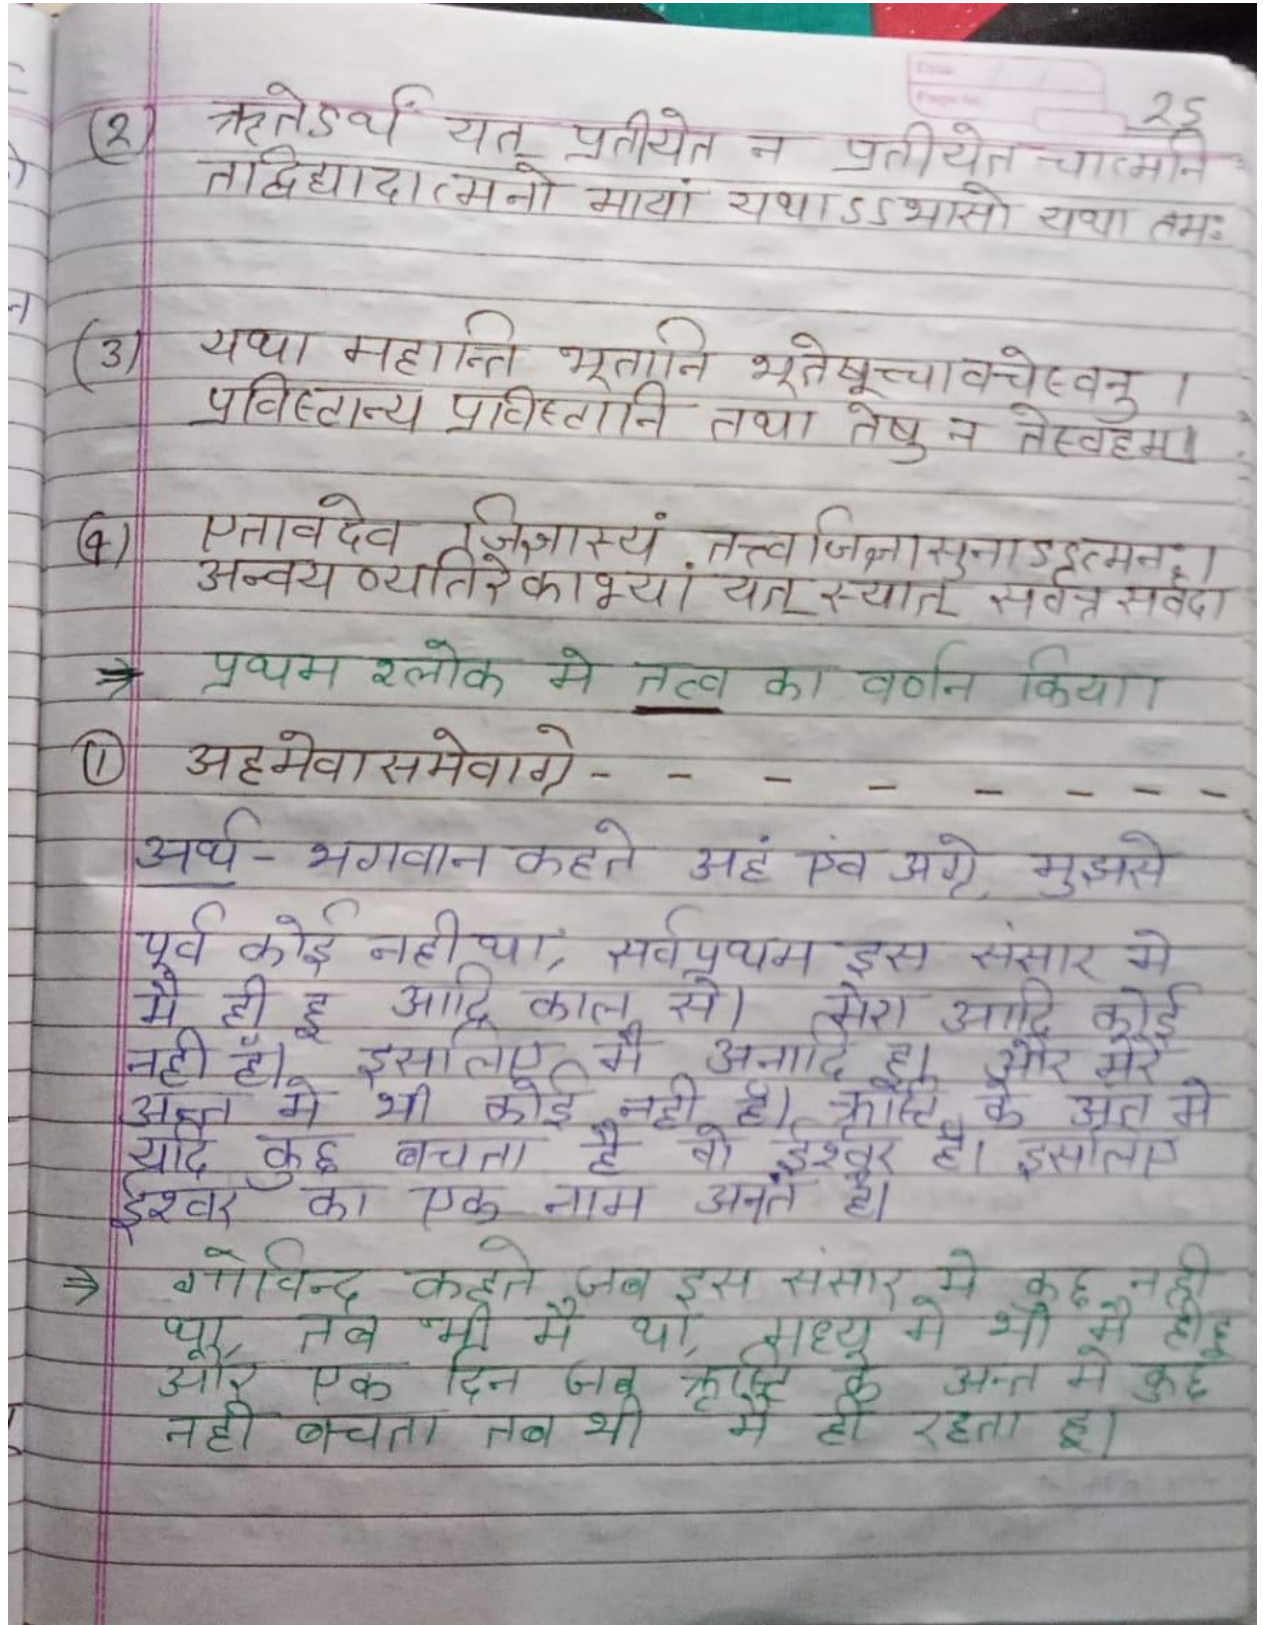 25
(2) ऋतेऽर्थं यत् प्रतीयेत न प्रतीयेत चात्मनि
तद्विद्यादात्मनो मायां यथाऽऽभासो यथा तमः
(3) यथा महान्ति भूतानि भूतेषूच्चावचेस्वनु।
प्रविस्टान्य प्रविस्टानि तथा तेषु न तेस्वहम।
(4) एतावदेव जिज्ञास्यं तत्त्वजिज्ञासुनाऽऽत्मनः।
अन्वय व्यतिरेकाभ्यां यत् स्यात् सर्वत्र सर्वदा
⇒ प्रथम श्लोक मे तत्व का वर्णन किया।
① अहमेवासमेवाग्रे - - - - - - - -
अर्थ - भगवान कहते अहं एंव अग्रे, मुझसे
पूर्व कोई नही था, सर्वप्रथम इस संसार मे
मै ही हू आदि काल से। मेरा आदि कोई
नही हैं। इसलिए मै अनादि हू। और मेरे
अन्त मे भी कोई नही हैं। क्रष्टि के अंत मे
यदि कुछ बचता है वो ईश्वर है। इसलिए
ईश्वर का एक नाम अनंत है।
⇒ गोविन्द कहते जब इस संसार मे कुछ नही
था, तब भी मै था, मध्य मे भी मै ही हू
और एक दिन जब क्रष्टि के अन्त मे कुछ
नही बचता तब भी मै ही रहता हू।